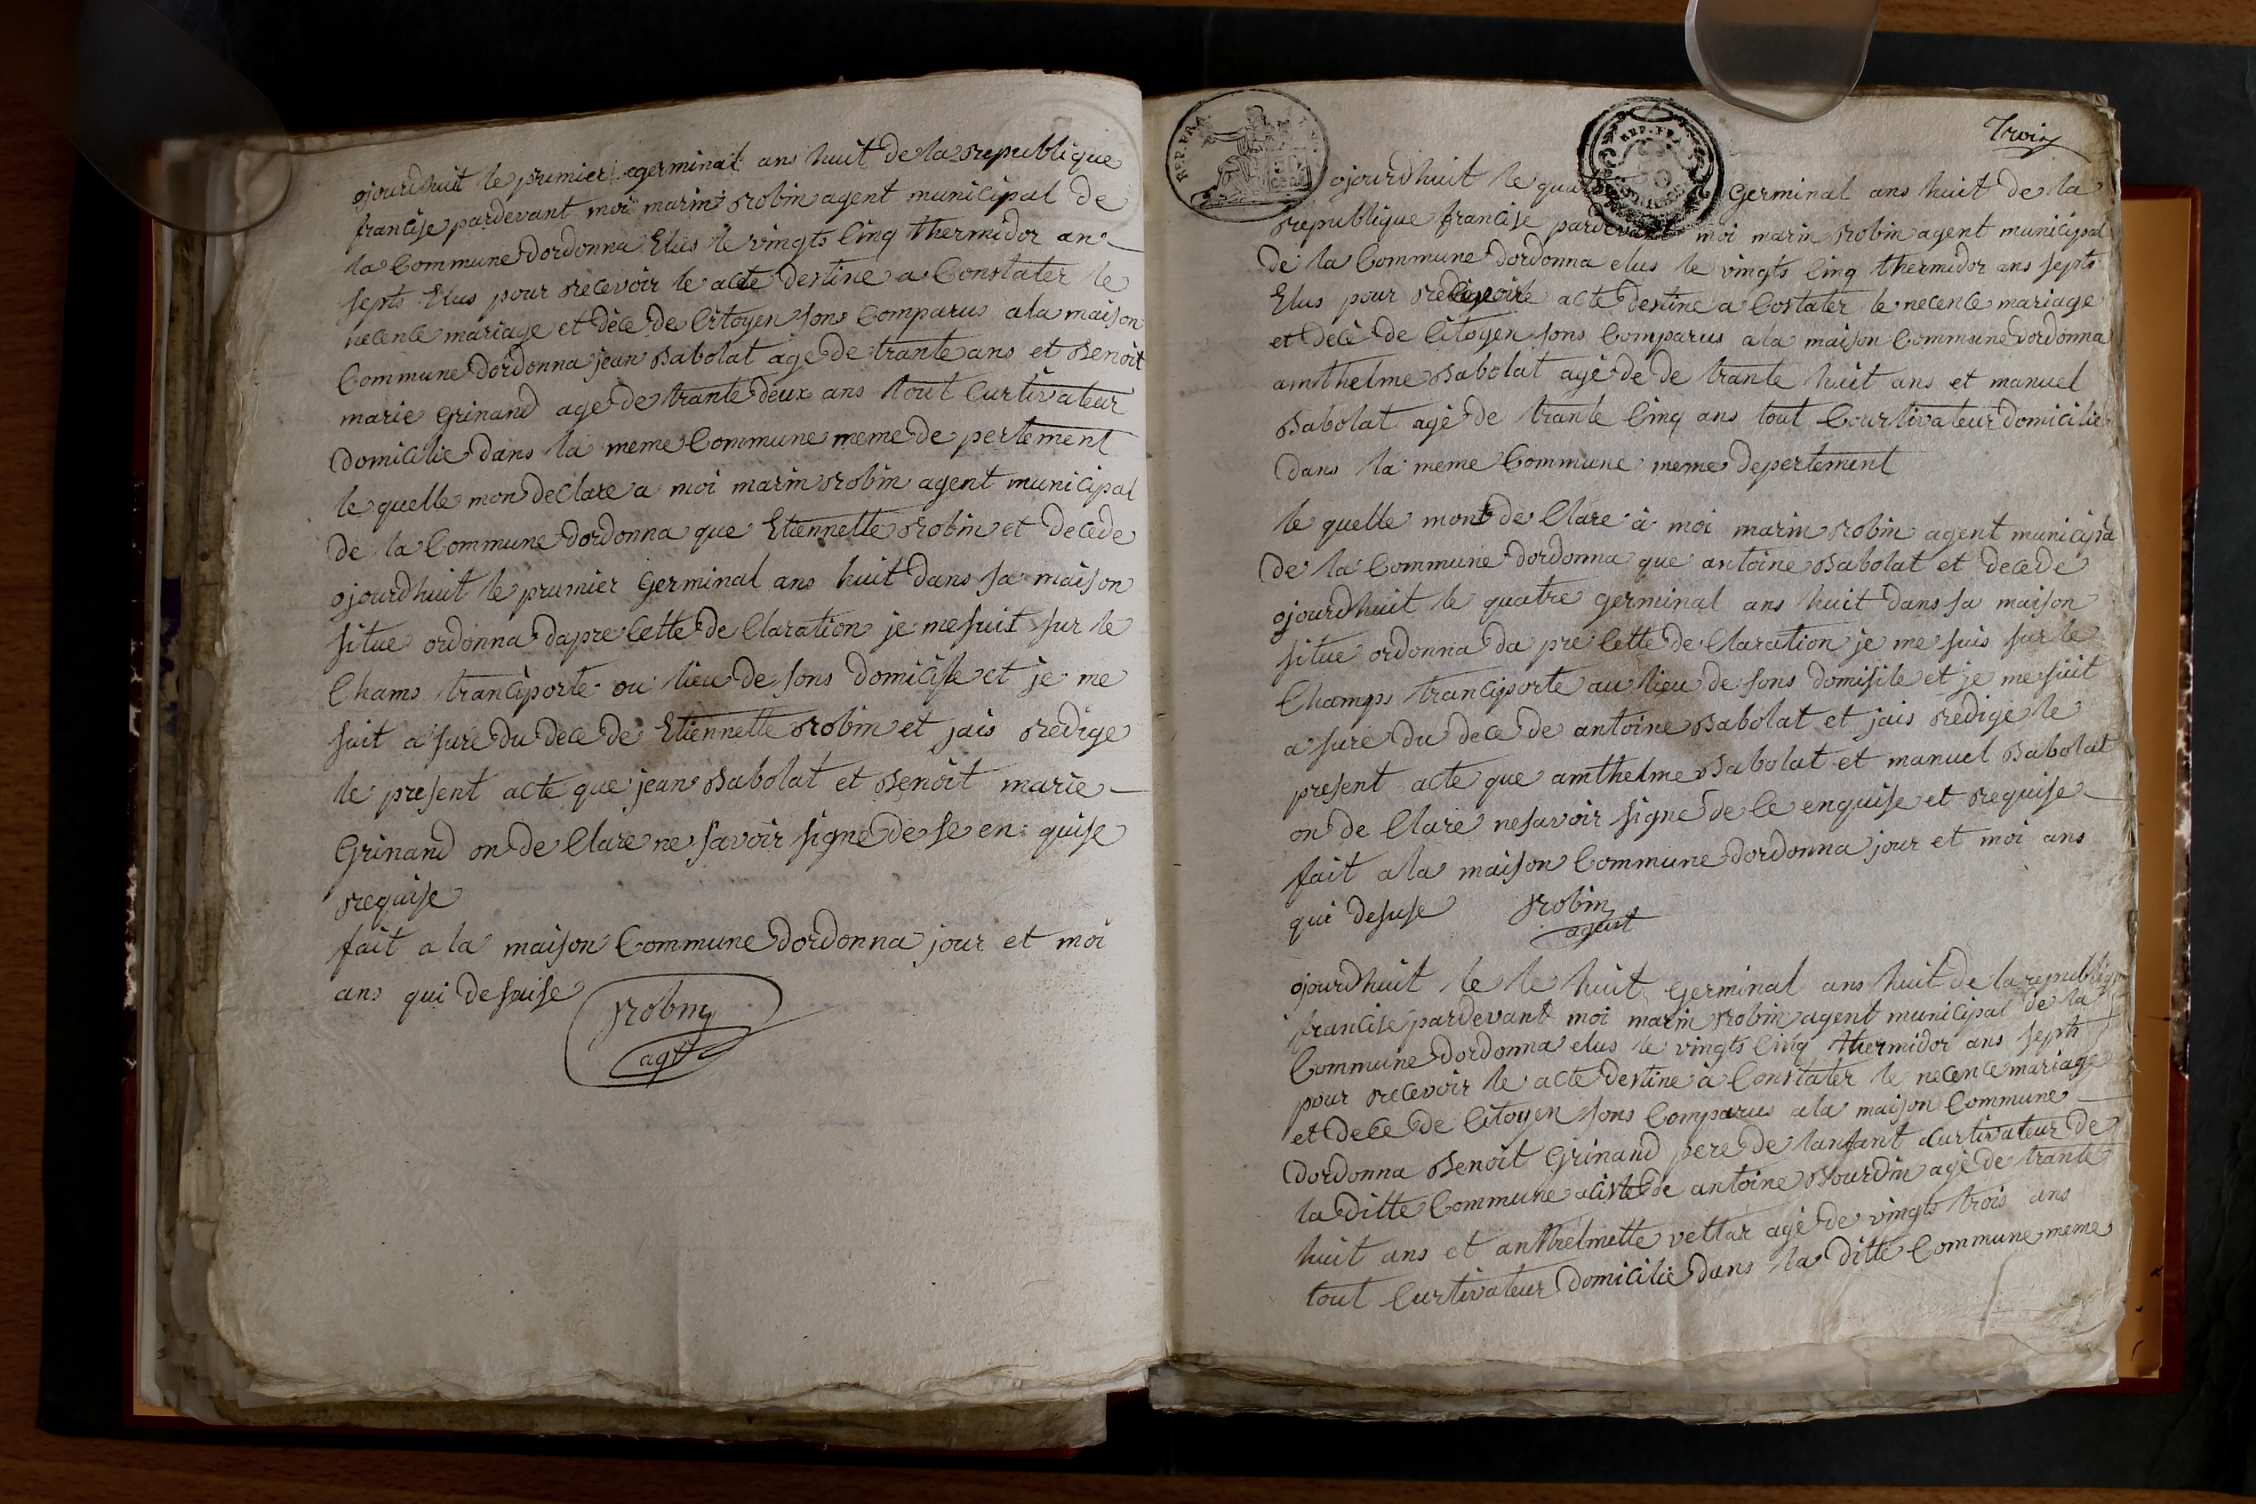 ojourdhuit le prumier germinal ans huit de la republique
francise pardevant moi marin robin agent municipal de
la Commune dordonna Elus le vingts Cinq thermidor an
septs Elus pour recevoir le acte destine a Constater le
necence mariage et dece de Citoyen sons Comparus a la maison
Commune dordonna jean Babolat age de trante ans et Benoit
marie Grinand age de trante deux ans tout Curtivateur
Domicilie dans la meme Commune meme de pertement
le quelle mon de Clare a moi marin robin agent municipal
de la Commune dordonna que Etiennette robin et decede
ojourdhuit le prumier Germinal ans huit dans sa maison
situe ordonna dapre Cette de Claration je me suit sur le
Chams tranciporte ou lieu de sons domicile et je me
suit a sure du dece de Etiennette robin et jais redige
le present acte que jean Babolat et Benoit marie
Grinand on de Clare ne savoir signe de se en quise
requise
fait a la maison Commune dordonna jour et moi
ans qui desuise
robin
agt
REP. FRA.
REP. FRA.
Troix
ojourdhuit le Germinal ans huit de la
republique francise pardevant moi marin robin agent municipal
de la Commune dordonna elus le vingts Cinq thermidor ans septs
Elus pour acte destine a Costater le necence mariage
et dece de Citoyen sons Comparus a la maison Commune dordonna
amthelme Babolat age de de trante huit ans et manuel
Babolat age de trante Cinq ans tout Courtivateur domicilie
dans la meme Commune meme depertement
le quelle mont de Clare à moi marin robin agent municipa
de la Commune dordonna que antoine Babolat et decede
ojourdhuit le quatre germinal ans huit dans sa maison
situe ordonna da pre Cette de Claration je me suis sur le
Champs tranciporte au lieu de sons domisile et je me suit
a sure du dece de antoine Babolat et jais redige le
present acte que amthelme Babolat et manuel Babolat
on de Clare ne savoir signe de Ce enquise et requise
fait a la maison Commune dordonna jour et moi ans
qui desuse robin
agent
ojourdhuit le le huit Germinal ans huit de la republiqu
francise pardevant moi marin robin agent municipal de la
Commune dordonna elus le vingts Cinq thermidor ans septs
pour recevoir le acte destine à Constater le necence mariage
et dece de Citoyen sons Comparus a la maison Commune
dordonna Benoit Grinand pere de lanfant Curtivateur de
la ditte Commune aciste de antoine Bourdin age de trante
huit ans et anthelmette vettar age de vingts trois ans
tout Curtivateur domicilie dans la ditte Commune meme